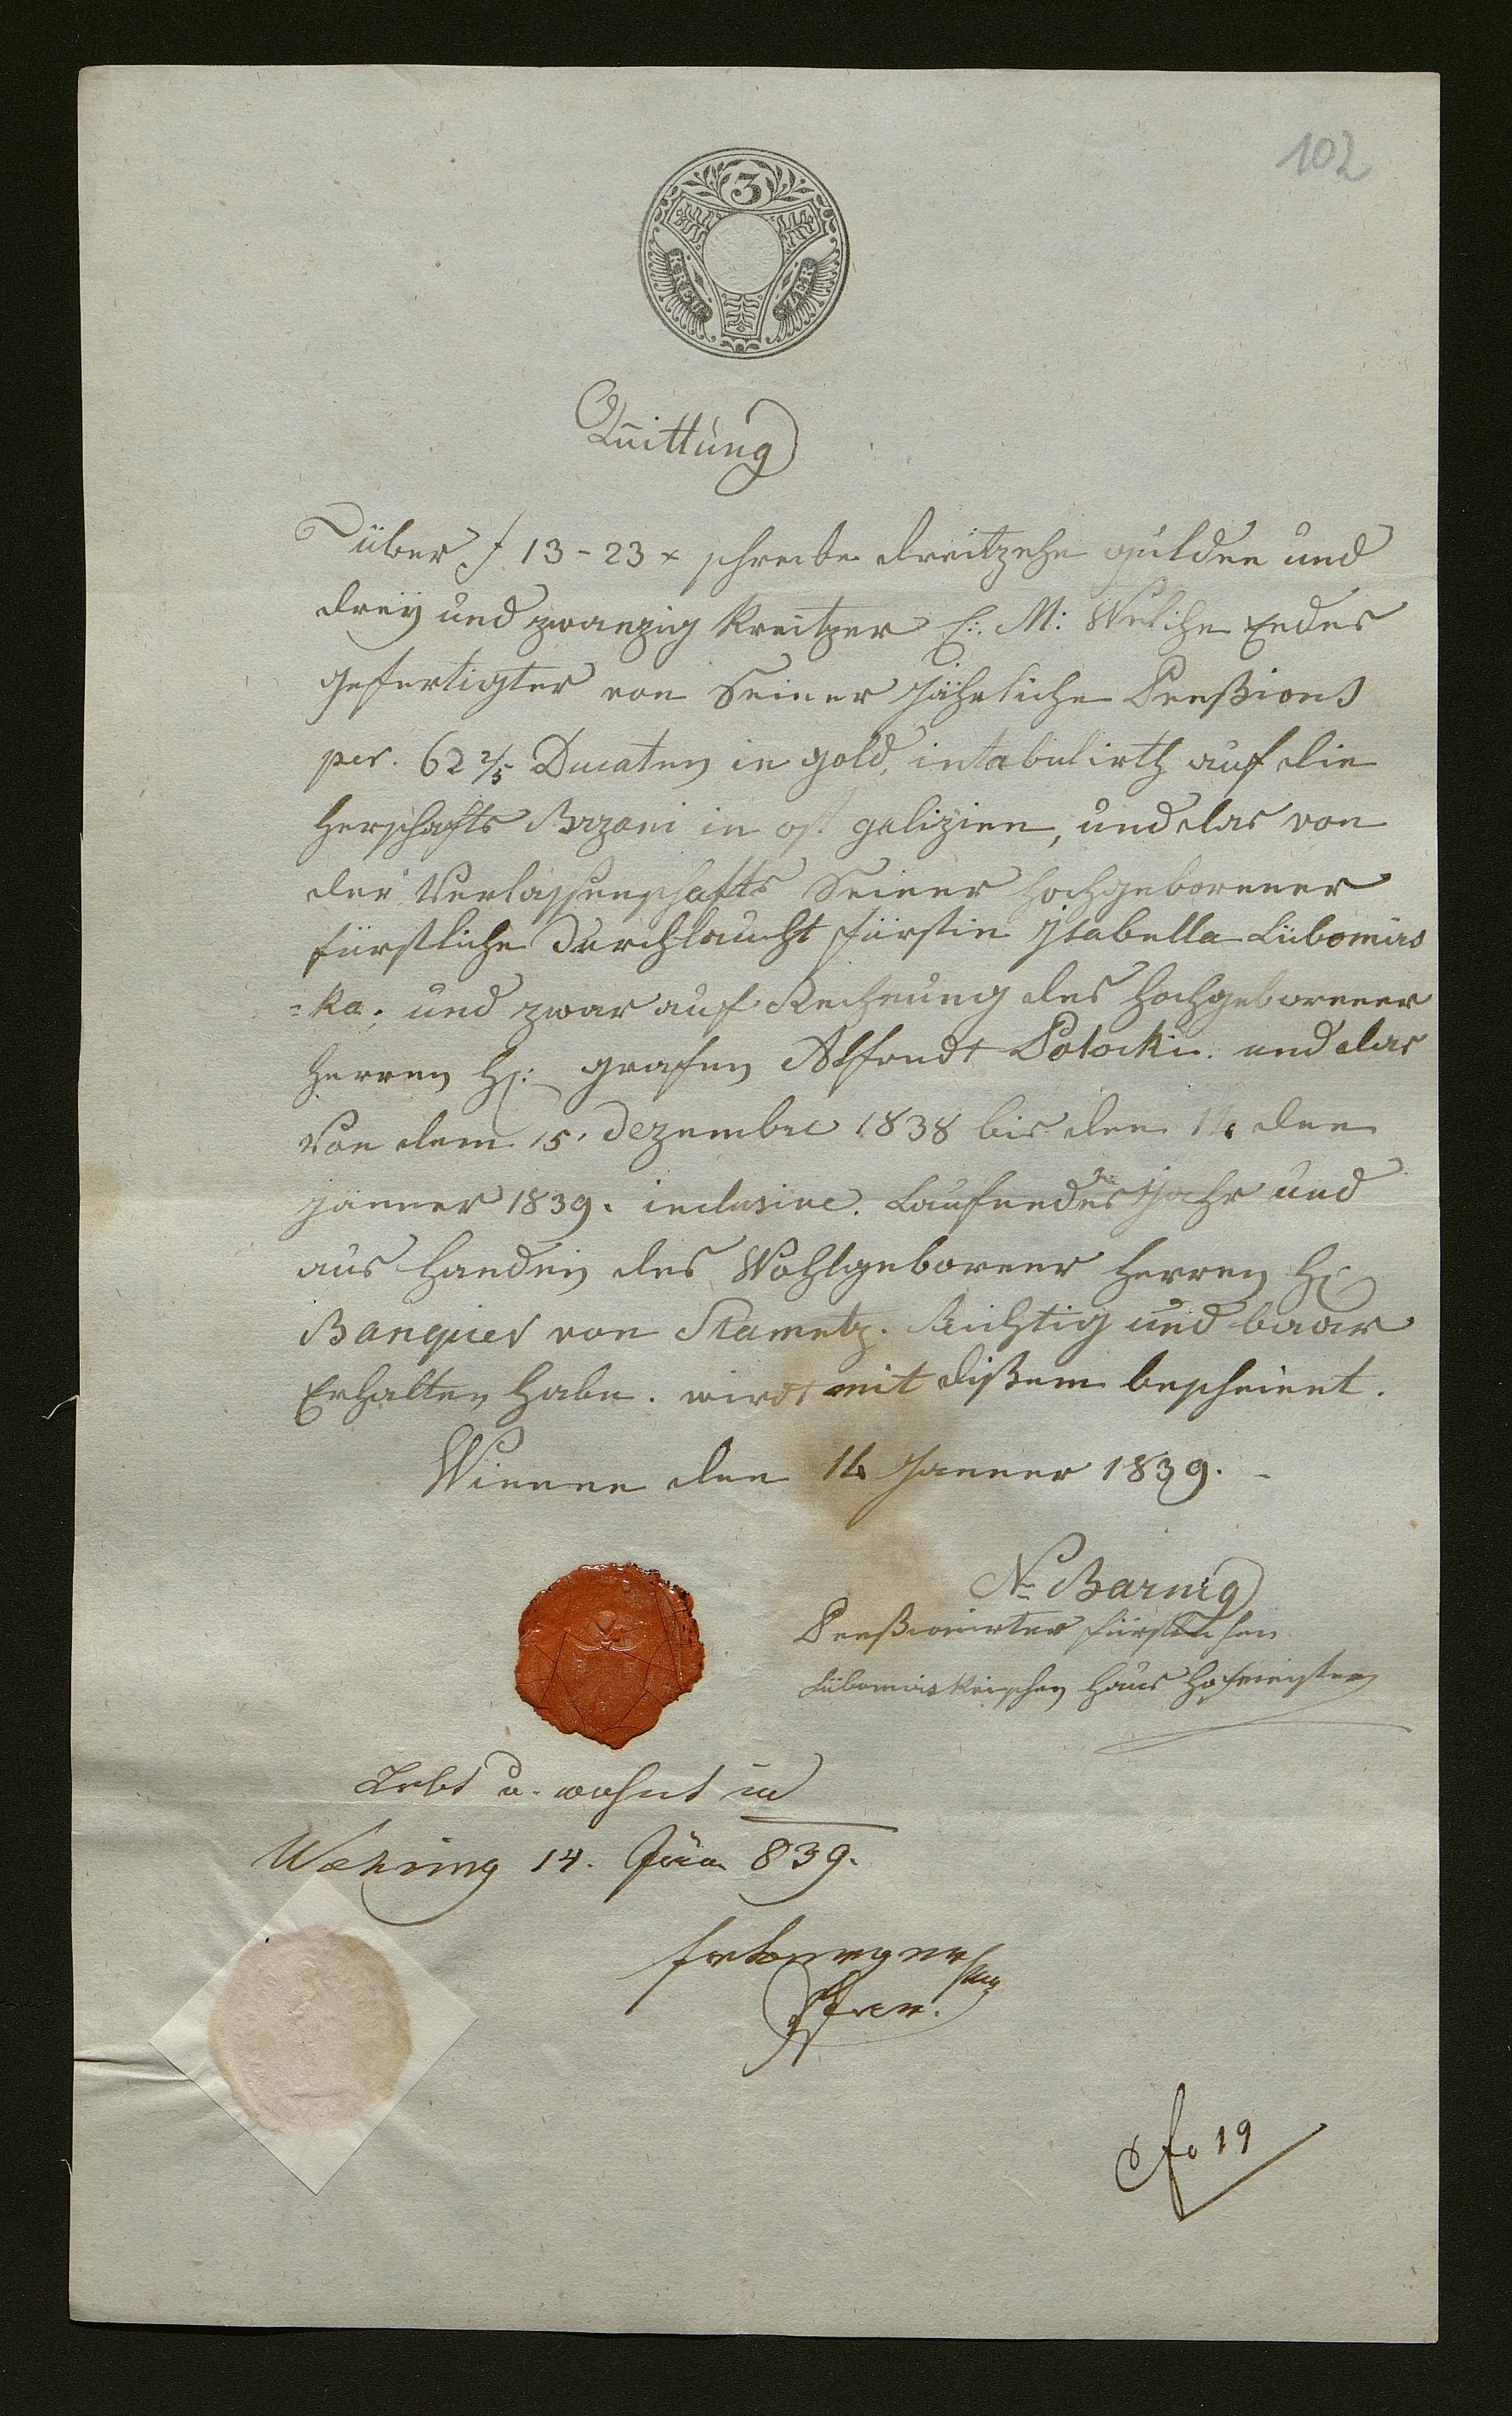 102
3
KREU ZER
Quittung
über f 13-23 x schreibe dreitzehn gulden und
dreÿ und zwanzig Kreitzer C: M: Welche Endes
gefertigter von Seiner Jährliche Penßions
per. 62 2/5 Ducaten in gold, intabulirth auf die
Herschafts Brzani in ost galizien, und das von
der Verlassenschafts Seiner Hochgeborener
fürstliche Durchlaucht fürstin Jsabella Lübomirs
=ka; und zwar auf Rechnung des Hochgeborener
Herren H: grafen Alfondt Potocki. und das
Von dem 15. Dezembre 1838 bis den 14 den
Janner 1839. inclusive. Laufendes Jahr und
aus Handen des Wohlgeborner Herren H:
Banquier von Stametz. Richtig und baar
Erhalten habe. wirdt mit dißem bescheint.
Wienne den 14 Janner 1839.
N. Barnig
Penßionirter fürstlichen
Lübomirskeischen Haus Hofmeister
Lebt u. wohnt in
Wæhring 14. Jän 839.
Pfarr.
fo 19